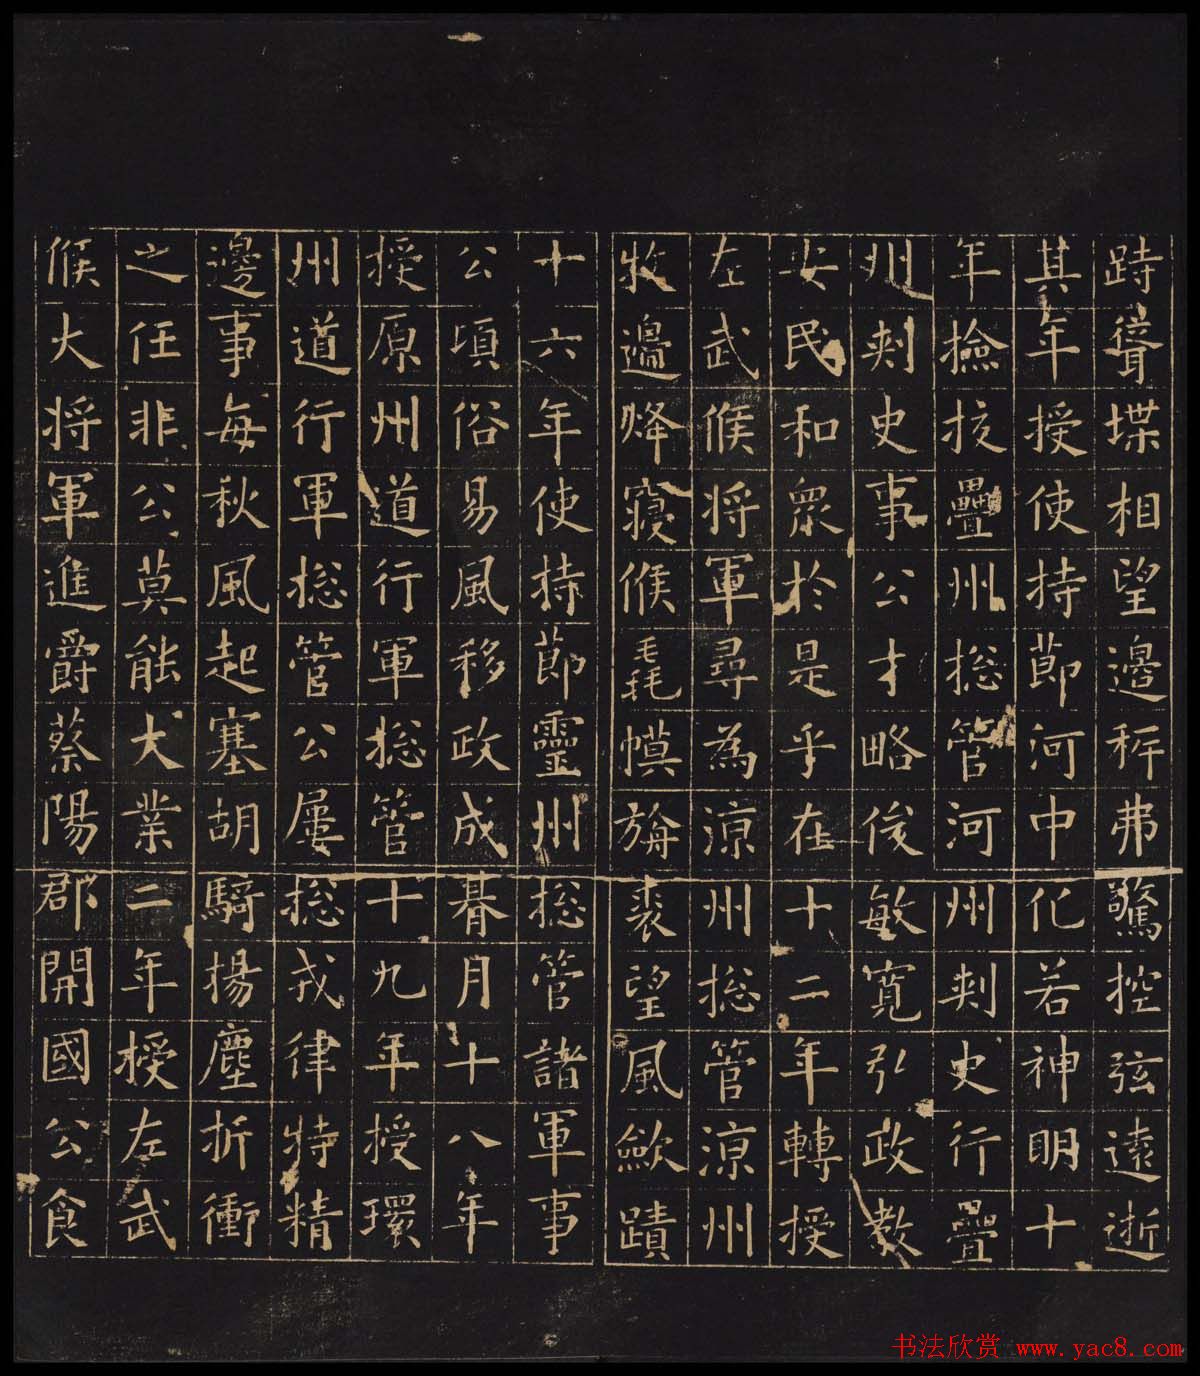 跱聳堞相望邊弗驚控弦遠逝
其年授使持節河中化若神明十
年撿挍疊州揔管河州刺史行疊
州刺史事公才略俊敏寬弘政教
安民和眾於是乎在十二年轉授
左武候將軍尋為涼州揔管涼州
牧邊烽寢候毳幙旃裘望風歛蹟
十六年使持節靈州揔管諸軍事
公頃俗易風移政成朞月十八年
授原州道行軍揔管十九年授環
州道行軍揔管公屢揔戎律特精
邊事每秋風起塞胡騎揚塵折衝
之任非公莫能大業二年授左武
候大將軍進爵蔡陽郡開國公食
书法欣赏 www.yac8.com